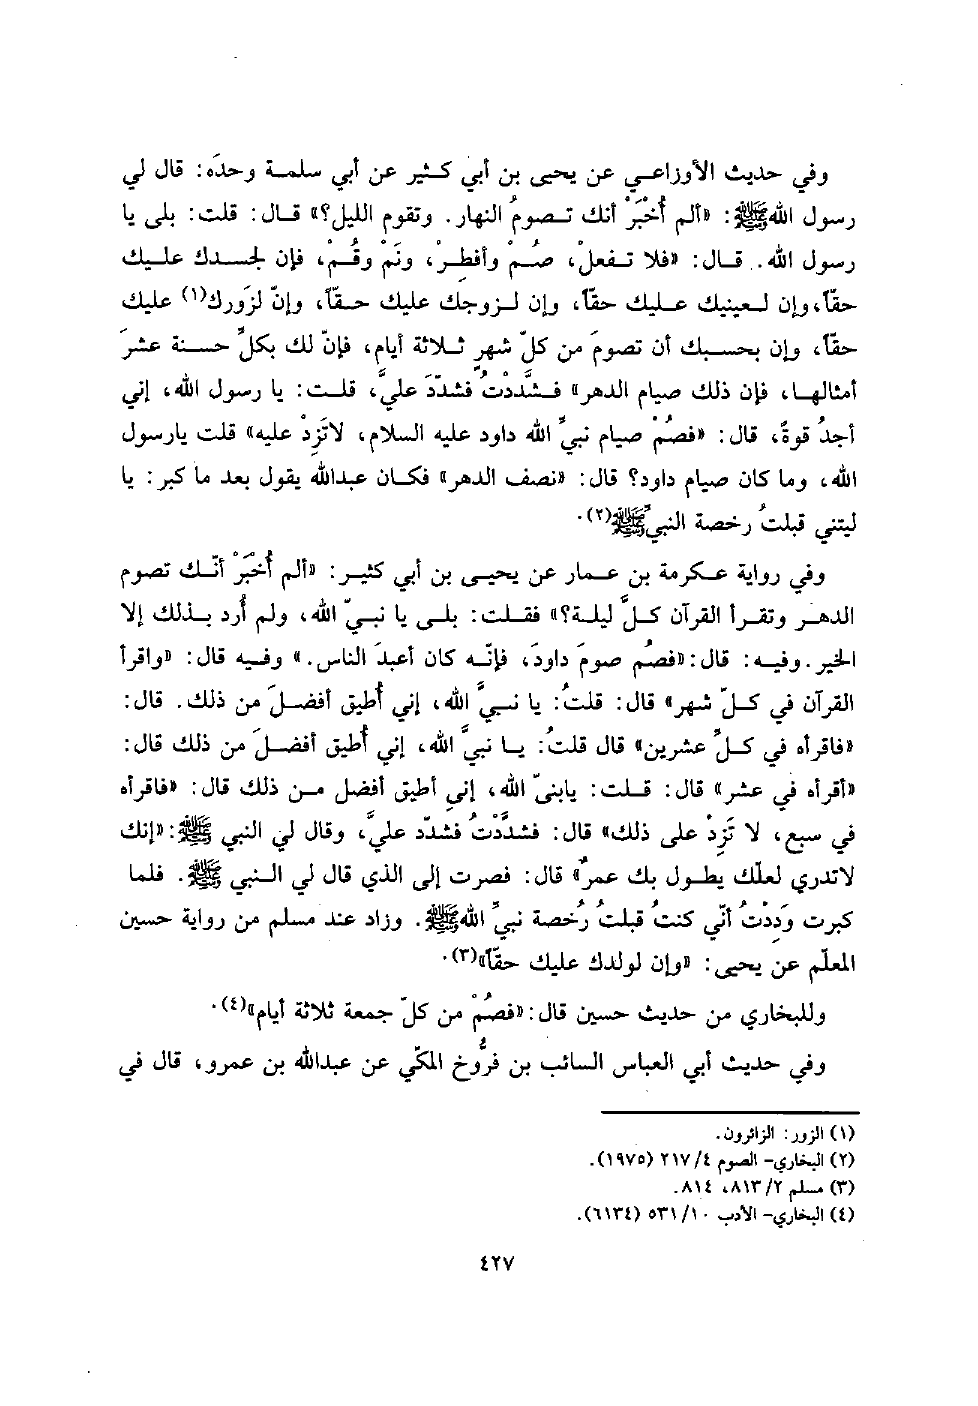 وفي حديث الأوزاعي عن يحيى بن أبي كثير عن أبي سلمة وحدَه: قال لي
رسول الله ﷺ: «ألم أُخْبَرْ أنك تصومُ النهار. وتقوم الليل؟» قال: قلت: بلى يا
رسول الله. قال: «فلا تفعلْ، صُمْ وأفطِرْ، ونَمْ وقُمْ، فإن لجسدك عليك
حقاً، وإن لعينيك عليك حقاً، وإن لزوجك عليك حقّاً، وإنّ لزَورك(١) عليك
حقاً، وإن بحسبك أن تصومَ من كلّ شهرٍ ثلاثة أيام، فإنّ لك بكلِّ حسنة عشرَ
أمثالها، فإن ذلك صيام الدهر» فشدَّدْتُ فشدّدَ عليَّ، قلت: يا رسول الله، إني
أجدُ قوةً، قال: «فصُمْ صيام نبيِّ الله داود عليه السلام، لاتَزِدْ عليه» قلت يارسول
الله، وما كان صيام داود؟ قال: «نصف الدهر» فكان عبدالله يقول بعد ما كبر: يا
ليتني قبلتُ رخصة النبيِّ ﷺ(٢).
وفي رواية عكرمة بن عمار عن يحيى بن أبي كثير: «ألم أُخْبَرْ أنّك تصوم
الدهر وتقرأ القرآن كلَّ ليلة؟» فقلت: بلى يا نبيّ الله، ولم أُرد بذلك إلا
الخير. وفيه: قال: «فصُم صومَ داودَ، فإنّه كان أعبدَ الناس.» وفيه قال: «واقرأ
القرآن في كلّ شهر» قال: قلتُ: يا نبيَّ الله، إني أُطيق أفضلَ من ذلك. قال:
«فاقرأه في كلِّ عشرين» قال قلتُ: يا نبيَّ الله، إني أُطيق أفضلَ من ذلك قال:
«أقرأه في عشر» قال: قلت: يابنيّ الله، إني أطيق أفضل من ذلك قال: «فاقرأه
في سبع، لا تَزِدْ على ذلك» قال: فشدَّدْتُ فشدّد عليَّ، وقال لي النبي ﷺ: «إنك
لاتدري لعلّك يطول بك عمرٌ» قال: فصرت إلى الذي قال لي النبي ﷺ. فلما
كبرت وَدِدْتُ أنّي كنتُ قبلتُ رُخصة نبيِّ الله ﷺ. وزاد عند مسلم من رواية حسين
المعلّم عن يحيى: «وإن لولدك عليك حقّاً»(٣).
وللبخاري من حديث حسين قال: «فصُمْ من كلّ جمعة ثلاثة أيام»(٤).
وفي حديث أبي العباس السائب بن فرُّوخ المكّي عن عبدالله بن عمرو، قال في
(١) الزور: الزائرون.
(٢) البخاري- الصوم ٤/ ٢١٧ (١٩٧٥).
(٣) مسلم ٢/ ٨١٣، ٨١٤.
(٤) البخاري- الأدب ١٠/ ٥٣١ (٦١٣٤).
٤٢٧